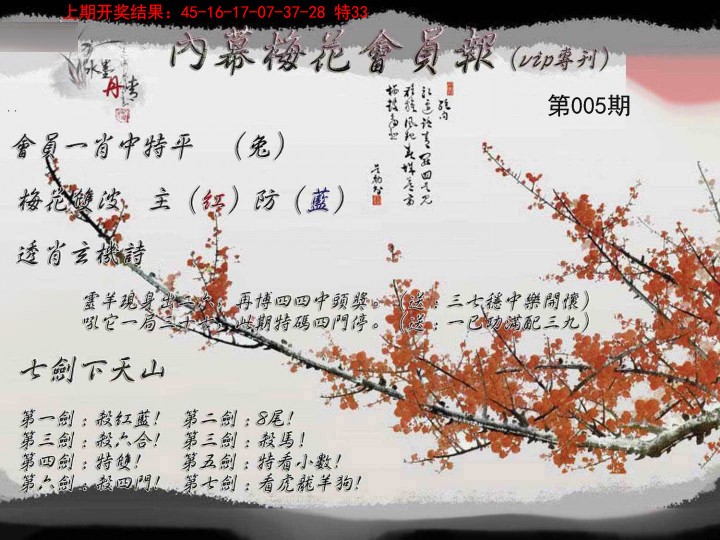 上期开奖结果：45-16-17-07-37-28 特33
內幕梅花會員報（vip專刊）
第005期
會員一肖中特平 （兔）
梅花雙波 主（紅）防（藍）
透肖玄機詩
靈羊現身出二六，再博四四中頭獎。（送：三七穩中樂開懷）
吼它一局三十六，此期特碼四門停。（送：一已功滿配三九）
七劍下天山
第一劍：殺紅藍！ 第二劍：8尾！
第三劍：殺六合！ 第三劍：殺馬！
第四劍：特雙！ 第五劍：特看小數！
第六劍：殺四門！ 第七劍：看虎龍羊狗！